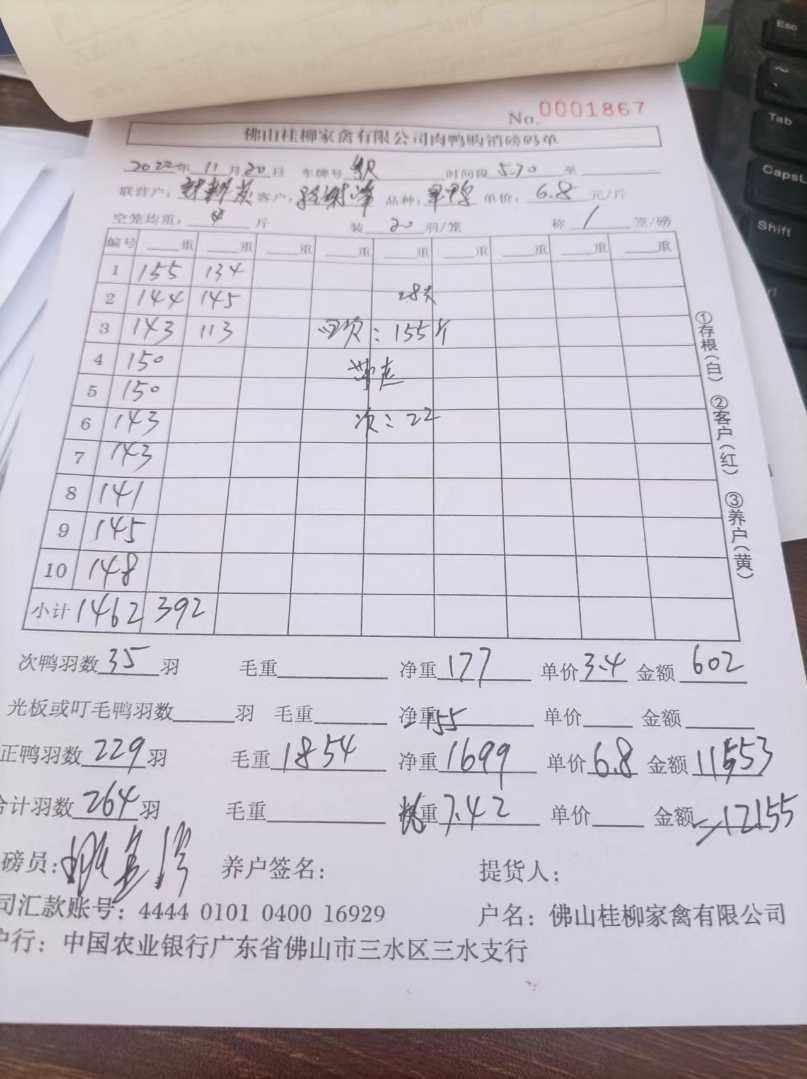 No. 0001867
佛山桂柳家禽有限公司肉鸭购销磅码单
2022年 11月20日 车牌号 时间段 5.30 至
联营户: 客户: 品种: 单价: 6.8 元/斤
空笼均重: 斤 装 20 羽/笼 称 1 笼/磅
编号 重 重 重 重 重 重 重 重
1 155 134
2 144 145 28天
3 143 113 次:155斤
4 150
5 150
6 143 次:22
7 143
8 141
9 145
10 148
小计 1462 392
①存根(白) ②客户(红) ③养户(黄)
次鸭羽数 35 羽 毛重 净重 177 单价 3.4 金额 602
光板或叮毛鸭羽数 羽 毛重 净重 155 单价 金额
正鸭羽数 229 羽 毛重 1854 净重 1699 单价 6.8 金额 11553
合计羽数 264 羽 毛重 重 7.42 单价 金额 12155
磅员: 养户签名: 提货人:
司汇款账号: 4444 0101 0400 16929 户名: 佛山桂柳家禽有限公司
户行: 中国农业银行广东省佛山市三水区三水支行
Esc
Tab
CapsL
Shift